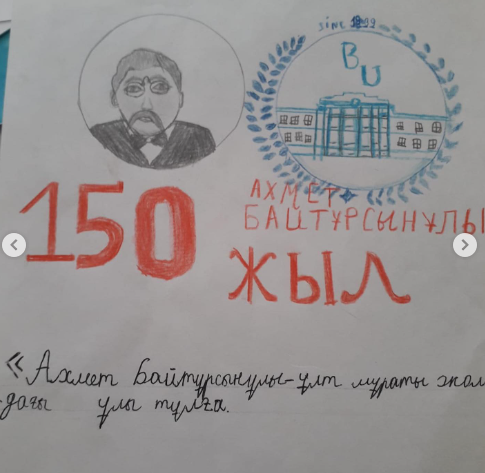 SINE
BU
АХМЕТ
БАЙТҰРСЫНҰЛЫ
150
ЖЫЛ
«Ахмет Байтұрсынұлы-ұлт мұраты жол
-дағы ұлы тұлға.